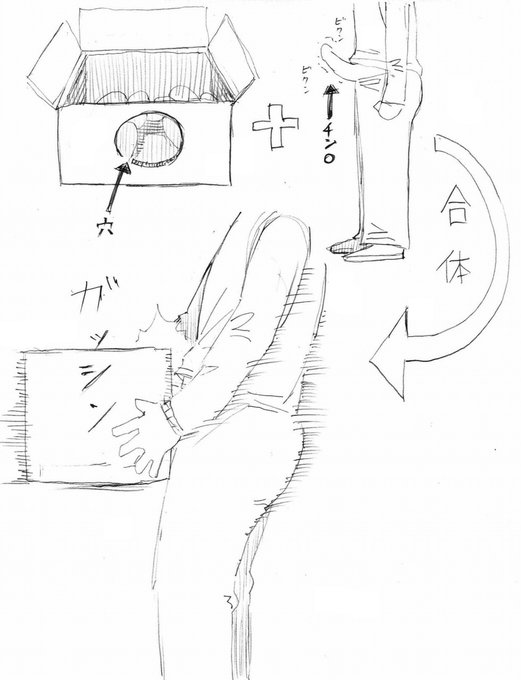 ビクン
ビクン
チン○
穴
合体
ガッシン